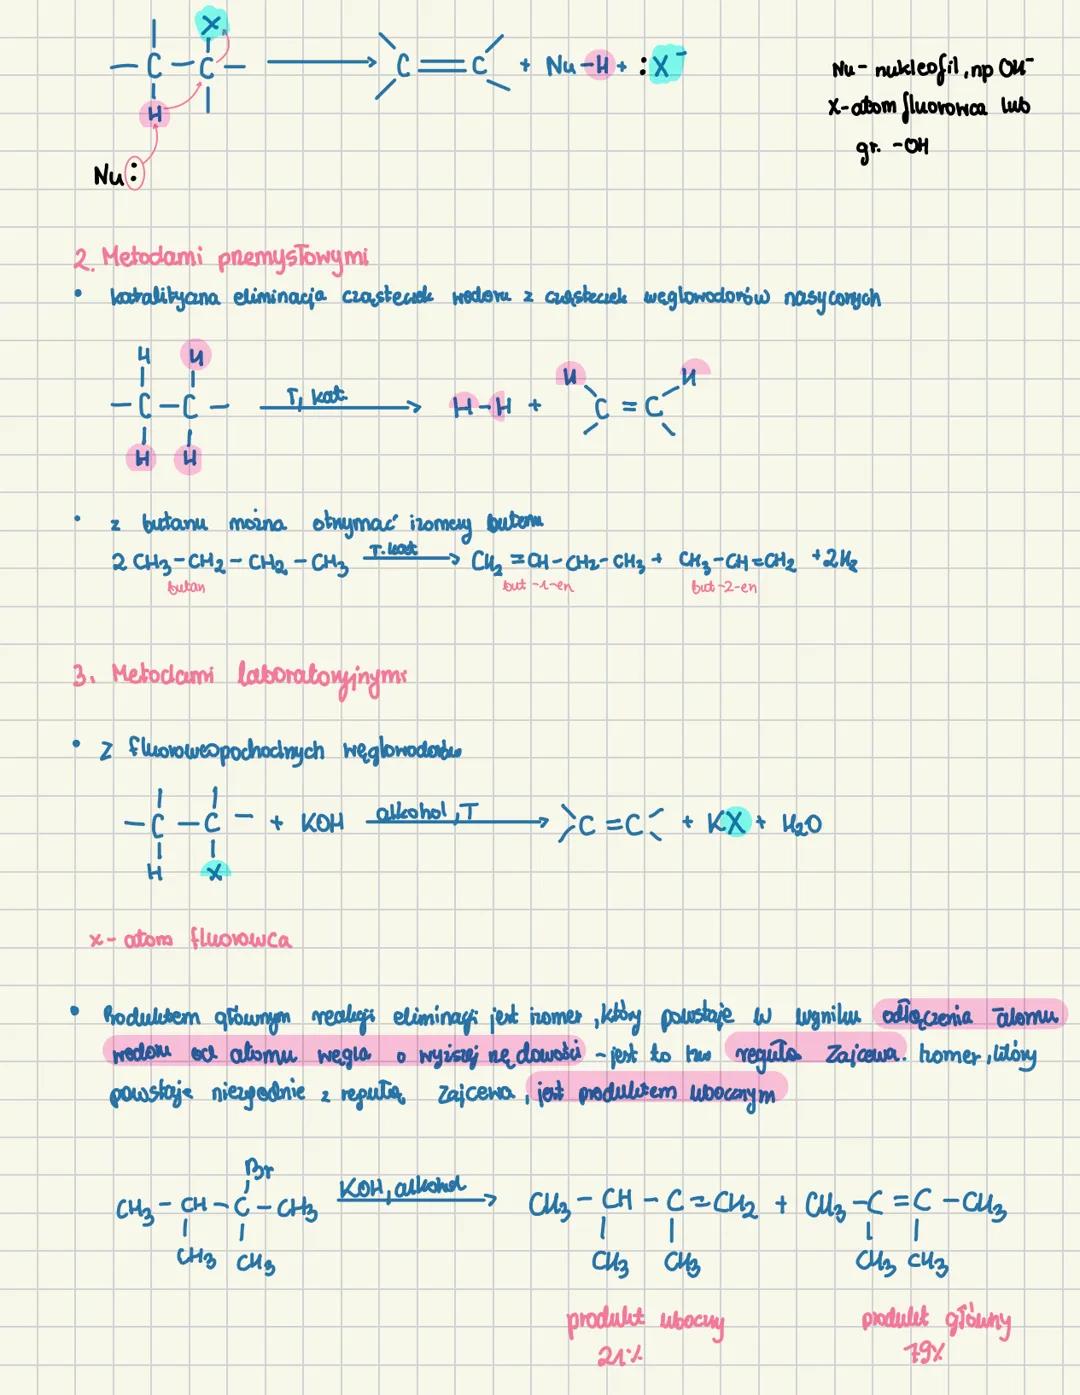 X
— C — C —
C = C + Nu–H + :X⁻
H
Nu:
Nu - nukleofil, np OH⁻
X-atom fluorowca lub
gr. -OH
2. Metodami przemysłowymi
• katalityczna eliminacja cząsteczek wodoru z cząsteczek węglowodorów nasyconych
H H
— C — C — T, kat. → H–H + C = C
H H
H H
• z butanu można otrzymać izomery butenu
2 CH₃–CH₂–CH₂–CH₃ T. kat → CH₂=CH–CH₂–CH₃ + CH₃–CH=CH₂ + 2H₂
butan but-1-en but-2-en
3. Metodami laboratoryjnymi
• z fluorowcopochodnych węglowodorów
— C — C — + KOH alkohol, T → C = C + KX + H₂O
H X
x - atom fluorowca
• Produktem głównym reakcji eliminacji jest izomer, który powstaje w wyniku odłączenia atomu
wodoru od atomu węgla o wyższej rzędowości - jest to tzw reguła Zajcewa. Izomer, który
powstaje niezgodnie z regułą Zajcewa, jest produktem ubocznym
Br
CH₃–CH–C–CH₃ KOH, alkohol → CH₃–CH–C=CH₂ + CH₃–C=C–CH₃
CH₃ CH₃ CH₃ CH₃ CH₃ CH₃
produkt uboczny produkt główny
21% 79%